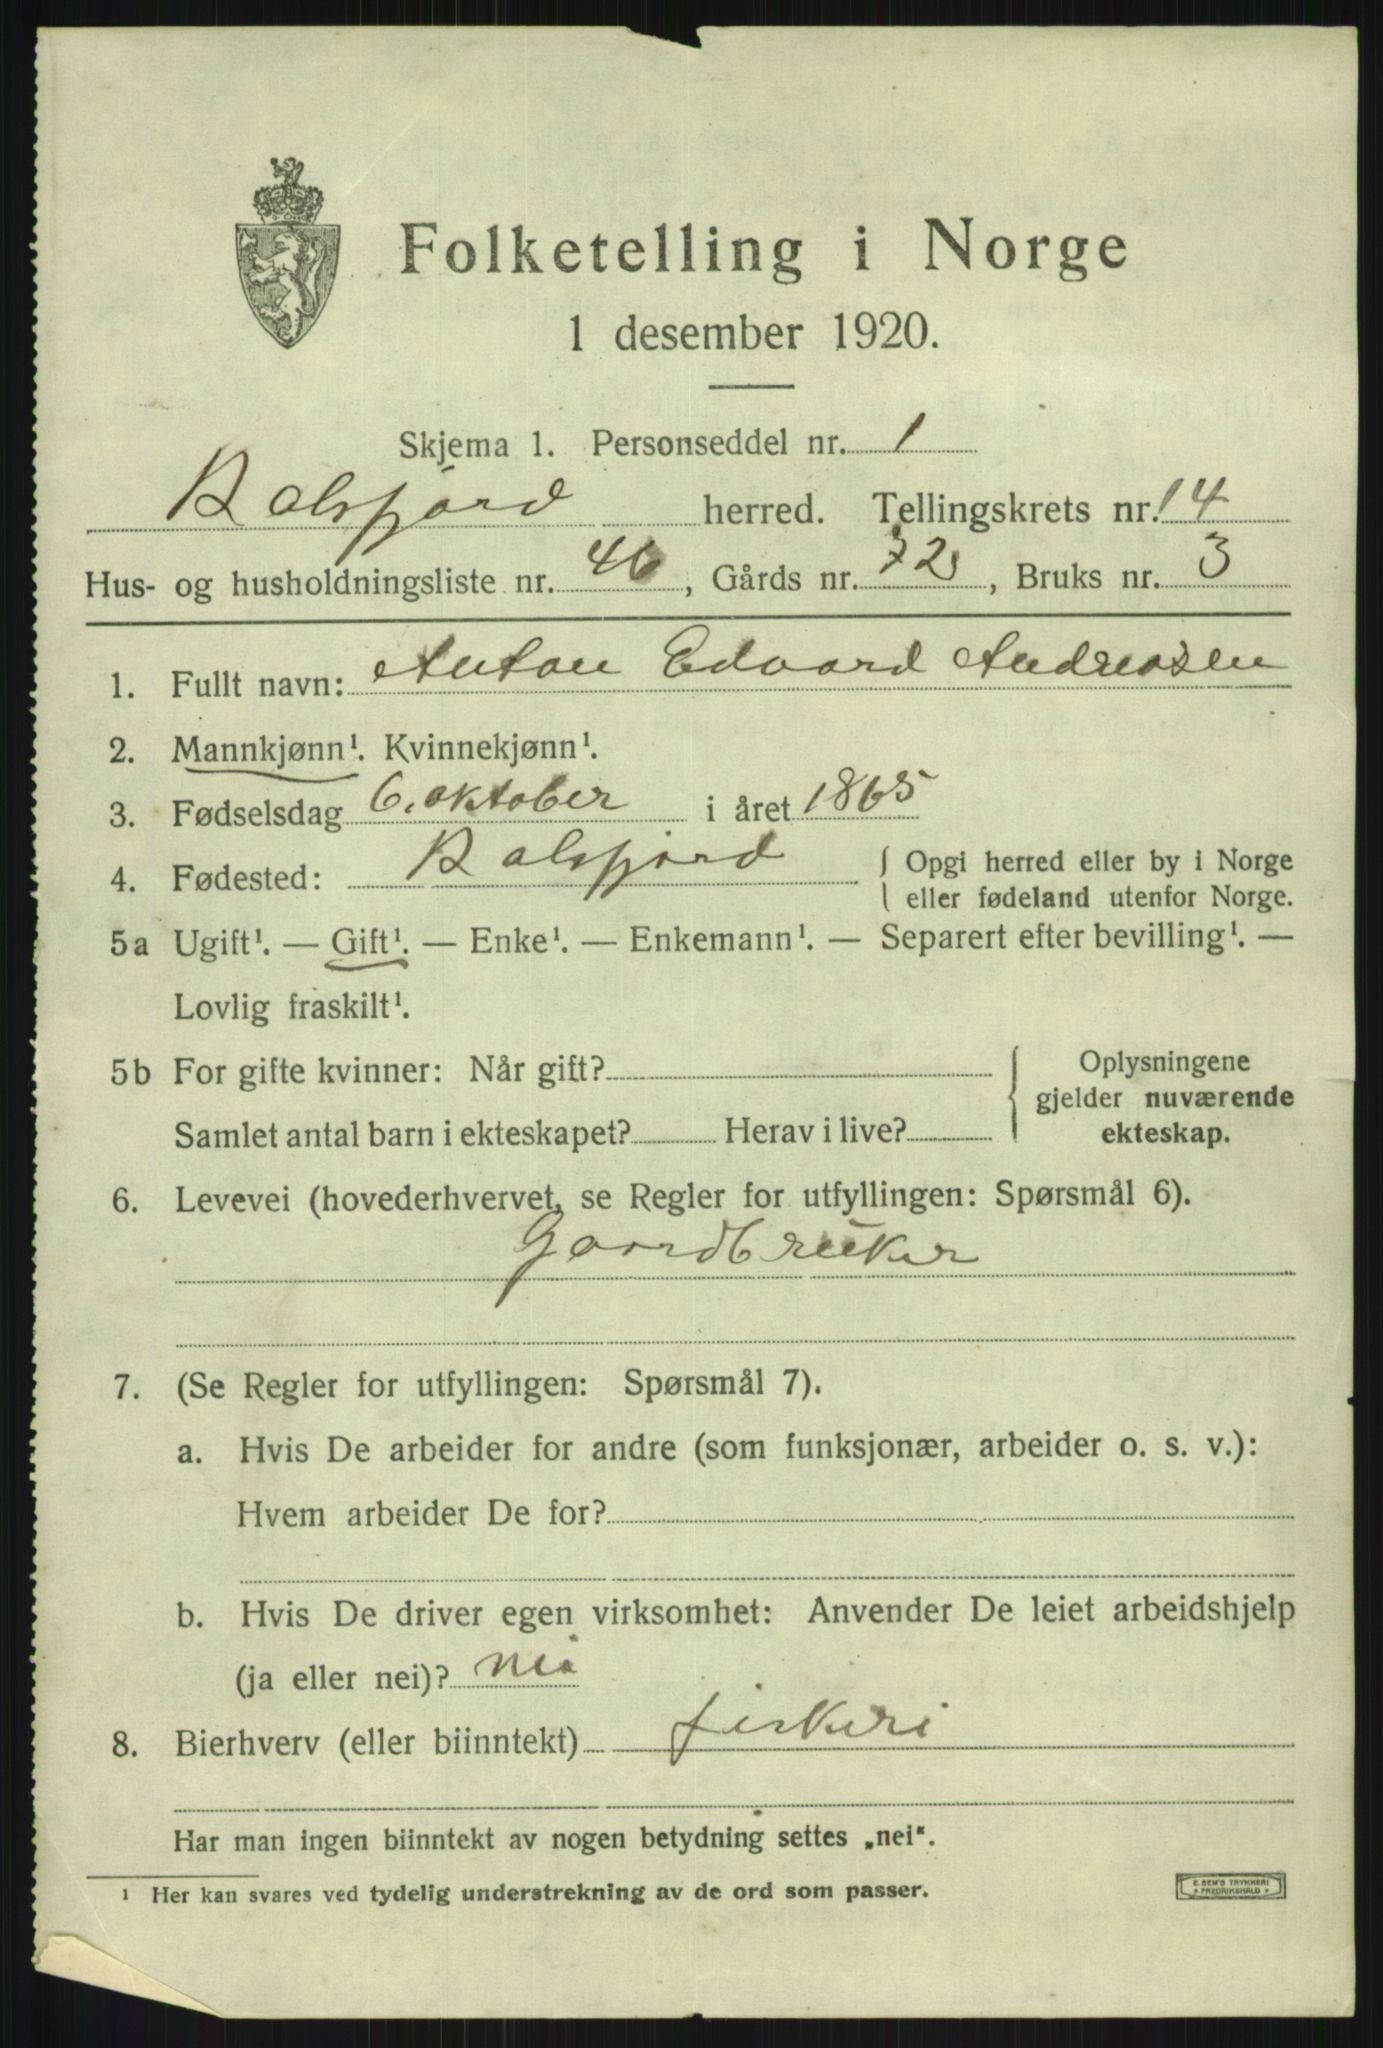 Folketelling i Norge
1 desember 1920.
Skjema 1. Personseddel nr. 1
Balsfjord herred. Tellingskrets nr. 14
Hus- og husholdningsliste nr. 46, Gårds nr. 72, Bruks nr. 3
1. Fullt navn: Anton Edvard Andreasen
2. Mannkjønn¹. Kvinnekjønn¹.
3. Fødselsdag 6. oktober i året 1865
4. Fødested: Balsfjord { Opgi herred eller by i Norge
eller fødeland utenfor Norge.
5a Ugift¹. — Gift¹. — Enke¹. — Enkemann¹. — Separert efter bevilling¹. —
Lovlig fraskilt¹.
5b For gifte kvinner: Når gift? { Oplysningene
gjelder nuværende
Samlet antal barn i ekteskapet? Herav i live? ekteskap.
6. Levevei (hovederhvervet, se Regler for utfyllingen: Spørsmål 6).
Gaardbruker
7. (Se Regler for utfyllingen: Spørsmål 7).
a. Hvis De arbeider for andre (som funksjonær, arbeider o. s. v.):
Hvem arbeider De for?
b. Hvis De driver egen virksomhet: Anvender De leiet arbeidshjelp
(ja eller nei)? nei
8. Bierhverv (eller biinntekt) fiskeri
Har man ingen biinntekt av nogen betydning settes „nei“.
¹ Her kan svares ved tydelig understrekning av de ord som passer.
E. SEM'S TRYKKERI
* FREDRIKSHALD *